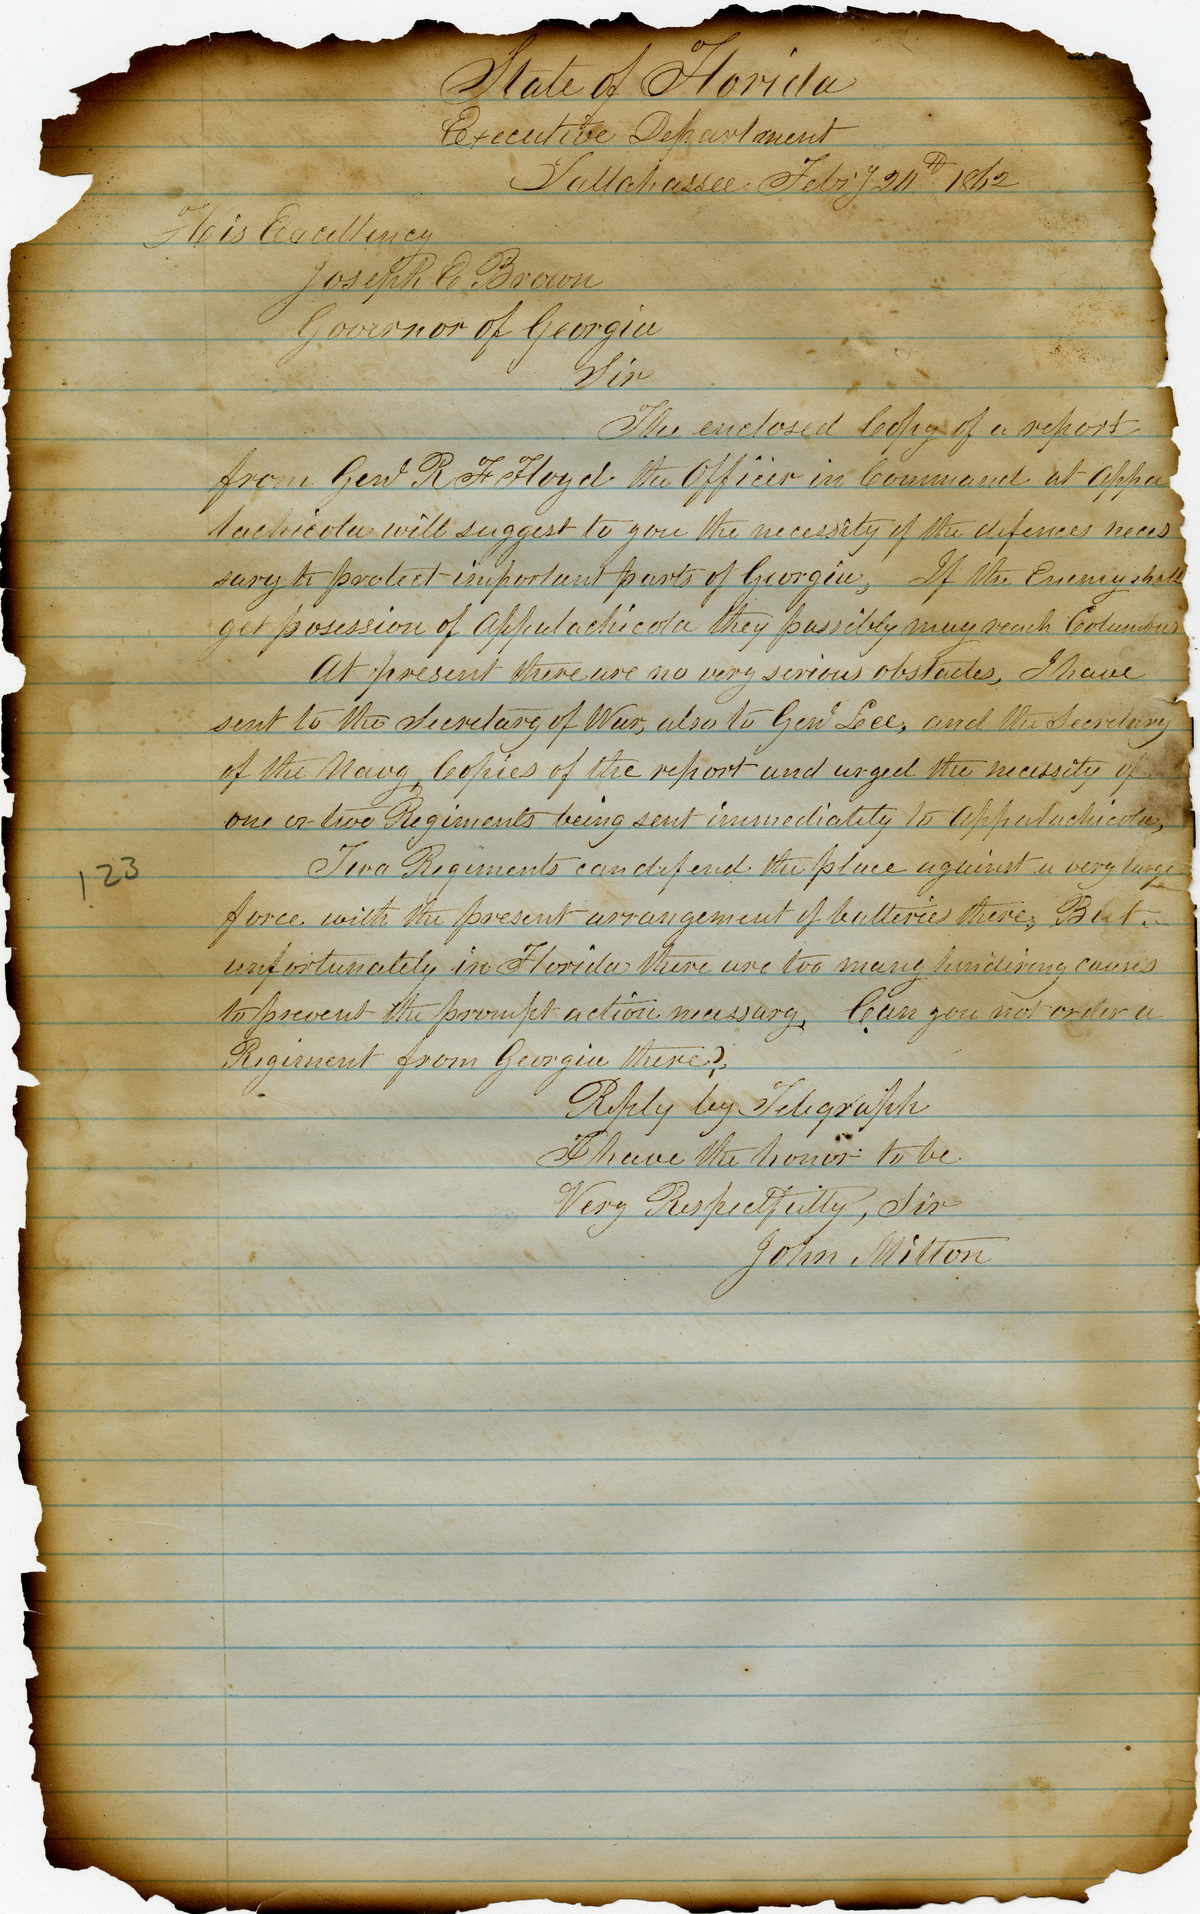 State of Florida
Executive Department
Tallahassee Feb'y 20th 1862
His Excellency
Joseph E Brown
Governor of Georgia
Sir
The enclosed Copy of a report
from Genl R F Floyd the Officer in Command at Appa
lachicola will suggest to you the necessity of the defences neces
sary to protect important parts of Georgia, If the Enemy shall
get posession of Appalachicola they possibly may reach Columbus
At present there are no very serious obstacles, I have
sent to the Secretary of War, also to Genl Lee, and the Secretary
of the Navy, Copies of the report and urged the necessity of
one or two Regiments being sent immediately to Appalachicola,
Two Regiments can defend the place against a very large
force with the present arrangement of batteries there, But
unfortunately in Florida there are too many hindiring causes
to prevent the prompt action necessary, Can you not order a
Regiment from Georgia there?
Reply by Telegraph
I have the honor to be
Very Respectfully, Sir
John Milton
123